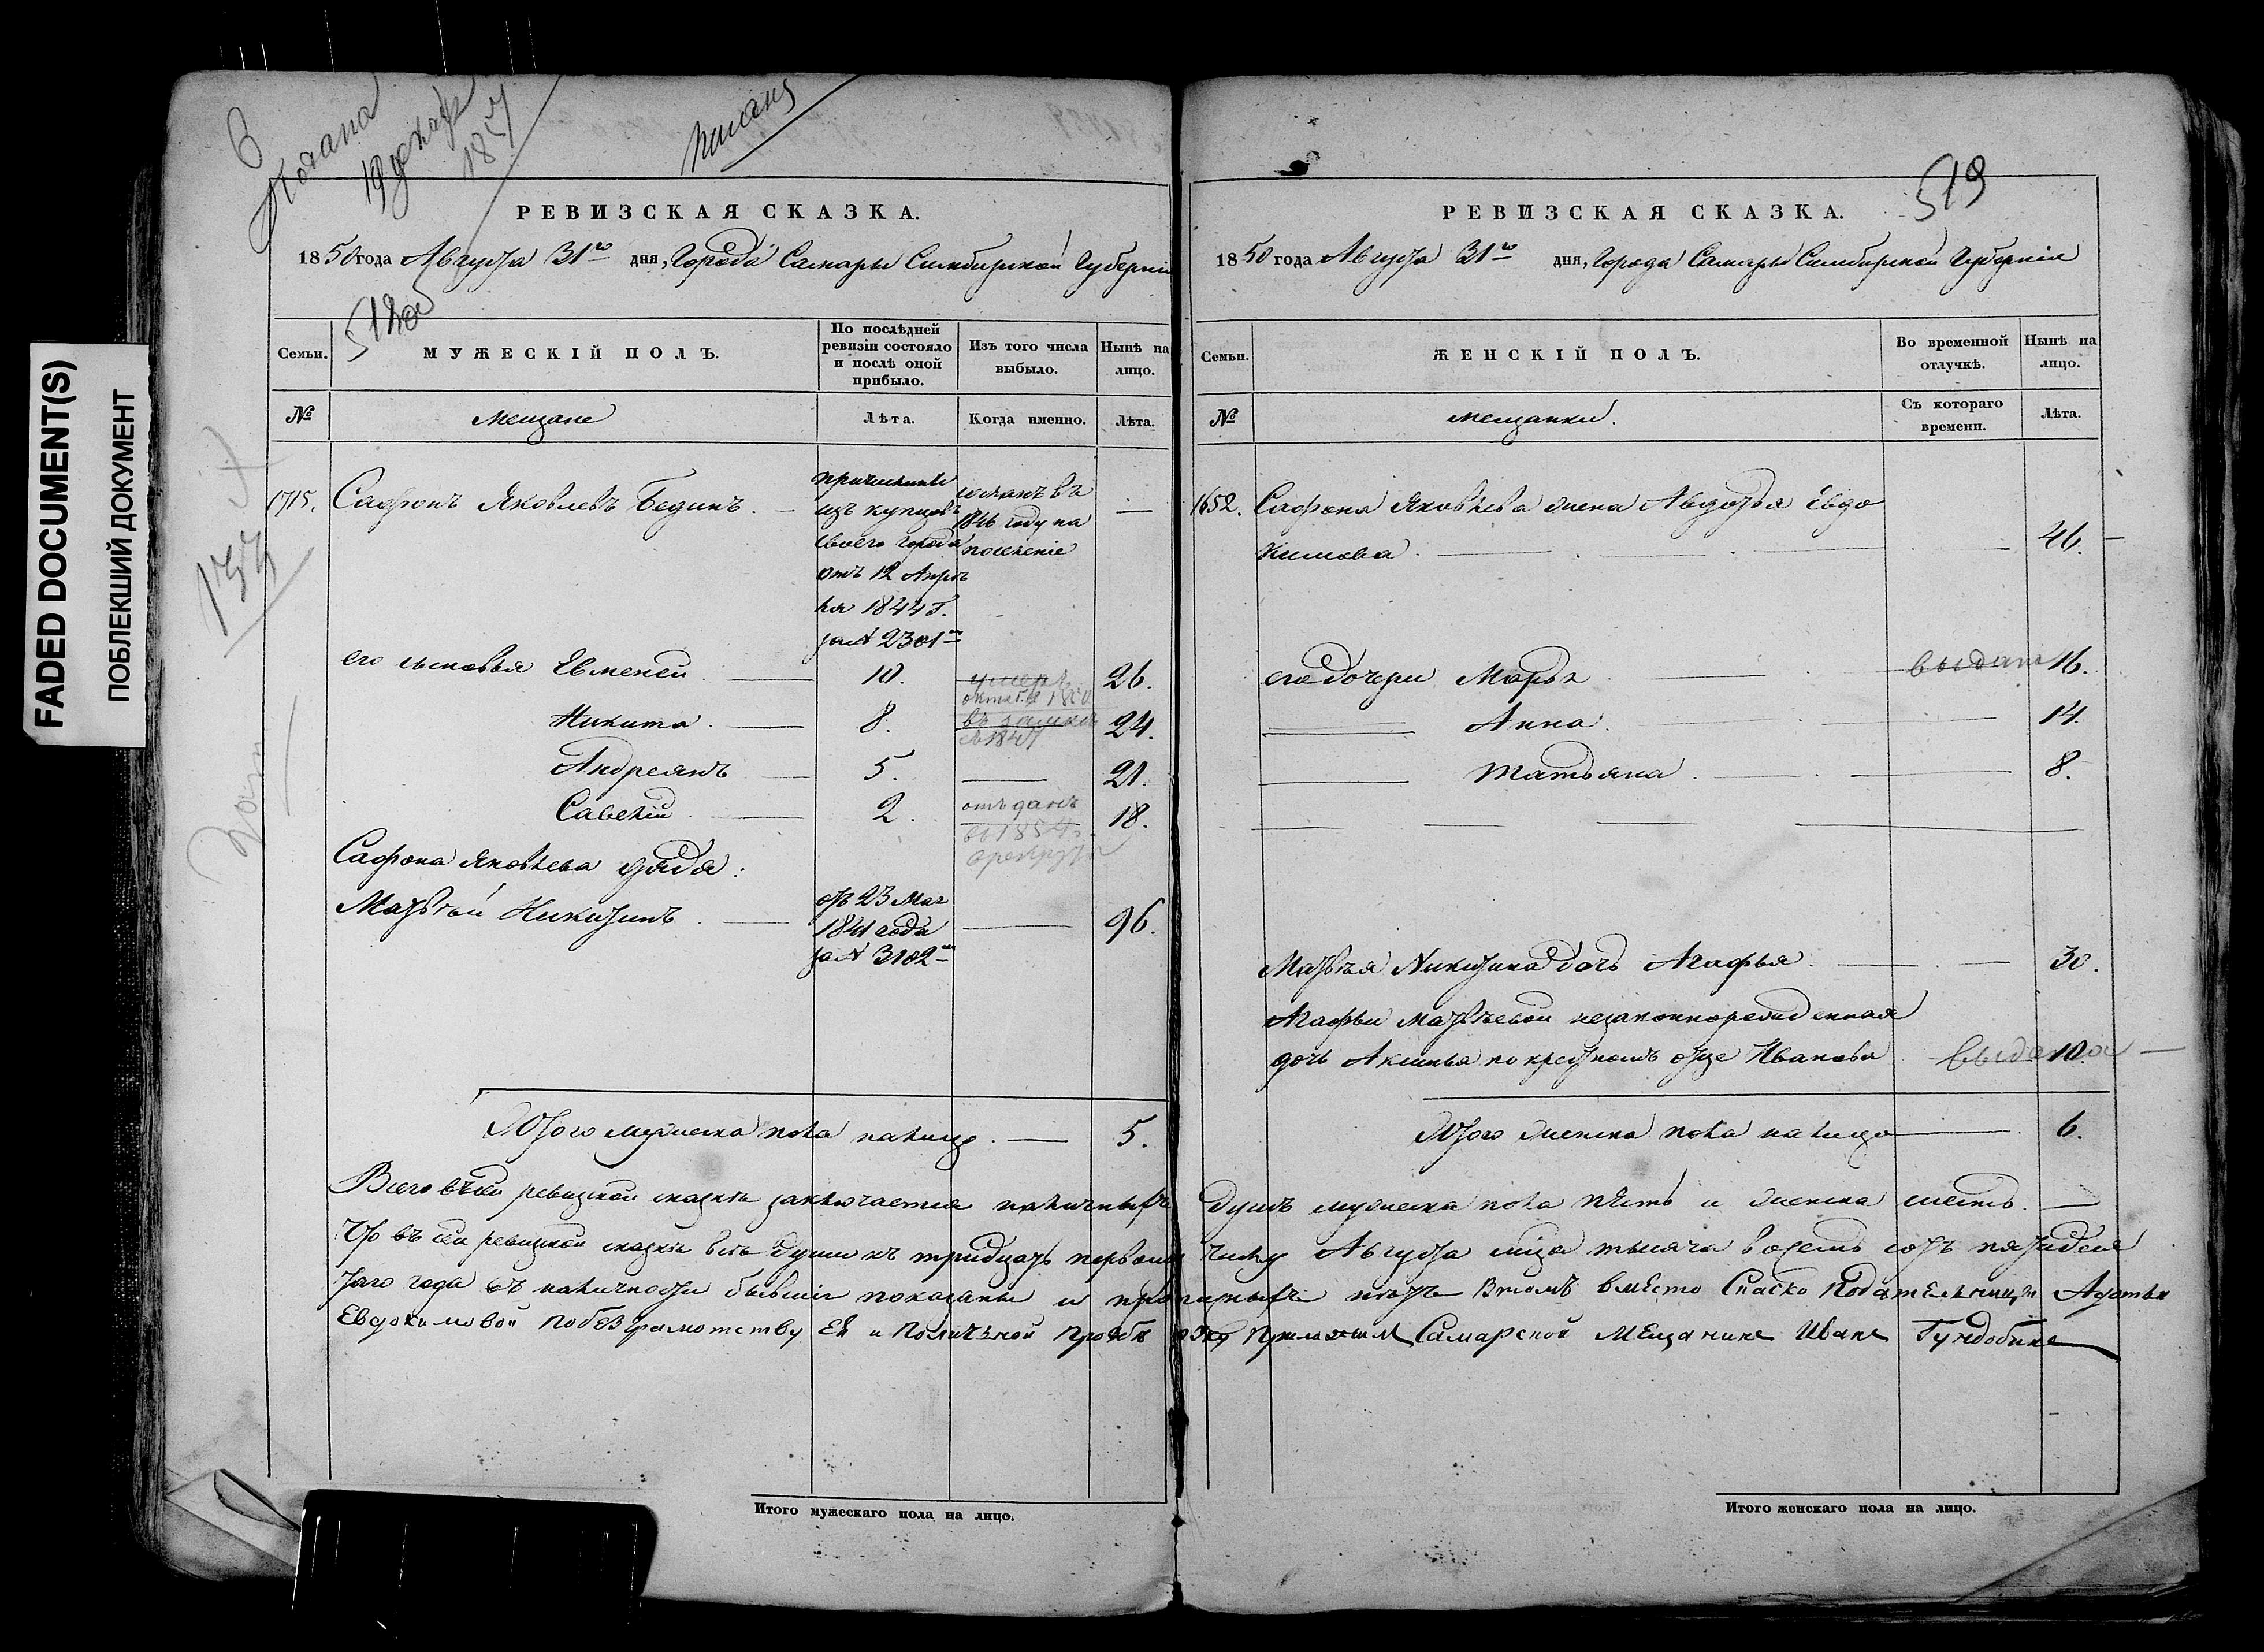 FADED DOCUMENT(S)
ПОБЛЕКШИЙ ДОКУМЕНТ
РЕВИЗСКАЯ СКАЗКА.
1850 года Августа 31го дня, Города Самары Симбирской Губерніи
Семьи.
МУЖЕСКІЙ ПОЛЪ.
По послѣдней ревизіи состояло и послѣ оной прибыло.
Изъ того числа выбыло.
Нынѣ на лицо.
№
Мещане
Лѣта.
Когда именно.
Лѣта.
1715. Сафронъ Яковлевъ Бединъ.
причисленъ
изъ купцовъ
своего города
отъ 12 Апрѣ
ля 1844 г.
за № 2301
сосланъ въ
1846 году на
поселеніе
его сыновья Евменей 10. умеръ 26.
Никита 8. 24.
Андреянъ 5. 21.
Савелій 2. отъданъ 18.
въ 1854
Сафрона Яковлева дядя:
Матвѣй Никитинъ 96.
отъ 23 Мая
1841 года
за № 3182
Итого мужеска пола налицо 5.
РЕВИЗСКАЯ СКАЗКА.
519
1850 года Августа 31го дня, Города Самары Симбирской Губерніи
Семьи.
ЖЕНСКІЙ ПОЛЪ.
Во временной отлучкѣ.
Нынѣ на лицо.
№
мещанки.
Съ котораго времени.
Лѣта.
1652. Сафрона Яковлева жена Авдотья Евдо
кимова. 46.
его дочери Марья выдана 16.
Анна 14.
Татьяна 8.
Матвѣя Никитина дочь Агафья 30.
Агафьи Матвѣевой незаконнорожденная
дочь Аксинья по крестномъ отце Иванова выдана 10.
Итого женска пола налицо 6.
Всего въ сей ревизской сказкѣ заключается наличныхъ душъ мужеска пола пять и женска шесть.
Что въ сей ревизской сказкѣ всѣ души къ тридцать первому числу Августа мца тысяча восемь сотъ пятидеся
таго года въ наличности бывшіе показаны и прописныхъ нѣтъ Втомъ вместо Скаско подательницы Адотьи
Евдокимовой по безграмотству Ея и поличьной прозбѣ руку приложил Самарской Мещанинъ Иванъ Гундобинъ
Итого мужескаго пола на лицо.
Итого женскаго пола на лицо.